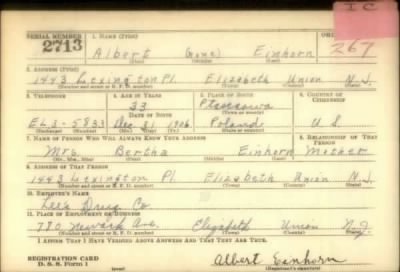 I C
SERIAL NUMBER 1. NAME (Print) ORDER
2713 Albert (none) Einhorn 267
2. ADDRESS (Print)
1443 Lexington Pl. Elizabeth Union N.J.
(Number and street or R. F. D. number) (Town) (County) (State)
3. TELEPHONE 4. AGE IN YEARS 5. PLACE OF BIRTH 6. COUNTRY OF CITIZENSHIP
33
DATE OF BIRTH
EL 3-5833 Dec. 31 1906 Poland U S
(Exchange) (Number) (Mo.) (Day) (Yr.) (State or country)
7. NAME OF PERSON WHO WILL ALWAYS KNOW YOUR ADDRESS 8. RELATIONSHIP OF THAT PERSON
Mrs. Bertha Einhorn Mother
(Mr., Mrs., Miss) (First) (Middle) (Last)
9. ADDRESS OF THAT PERSON
1443 Lexington Pl. Elizabeth Union N.J.
(Number and street or R. F. D. number) (Town) (County) (State)
10. EMPLOYER'S NAME
Lee's Drug Co
11. PLACE OF EMPLOYMENT OR BUSINESS
780 Newark Ave. Elizabeth Union N.J.
(Number and street or R. F. D. number) (Town) (County) (State)
I AFFIRM THAT I HAVE VERIFIED ABOVE ANSWERS AND THAT THEY ARE TRUE.
REGISTRATION CARD
D. S. S. Form 1
Albert Einhorn
(Registrant's signature)